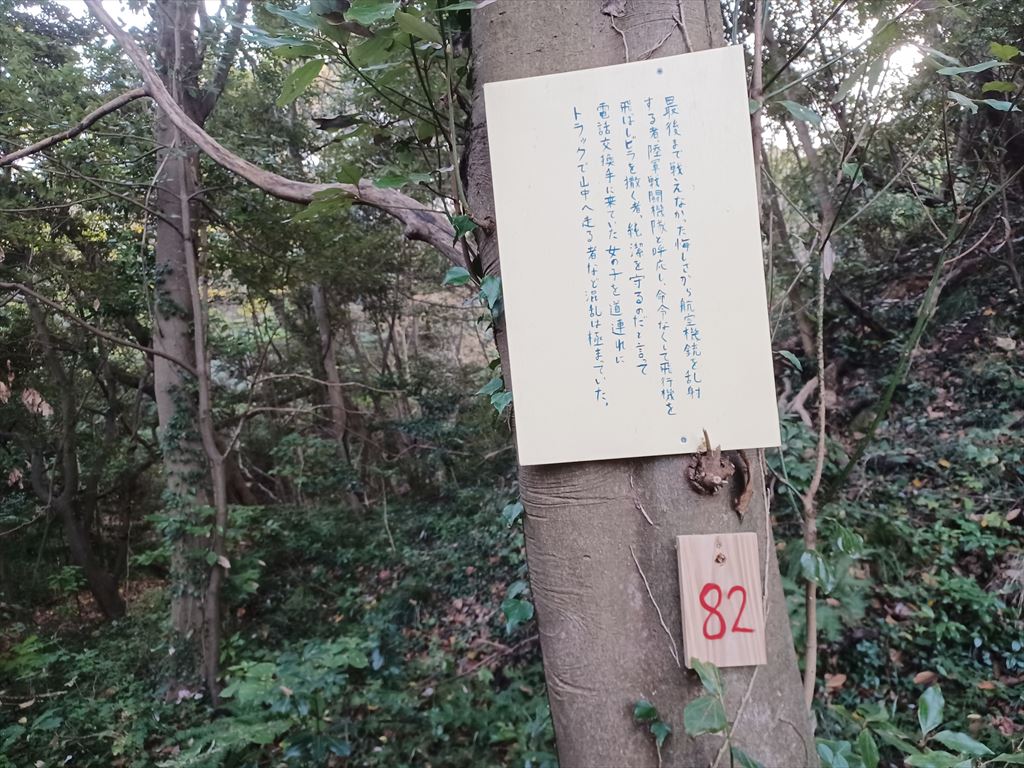 最後まで戦えなかった悔しさから航空機銃を乱射
する者陸軍戦闘機隊と呼応し、命令なくして飛行機を
飛ばしビラを撒く者、純潔を守るのだと言って
電話交換手に来ていた女の子を道連れに
トラックで山中へ走る者など混乱は極まっていた。
82